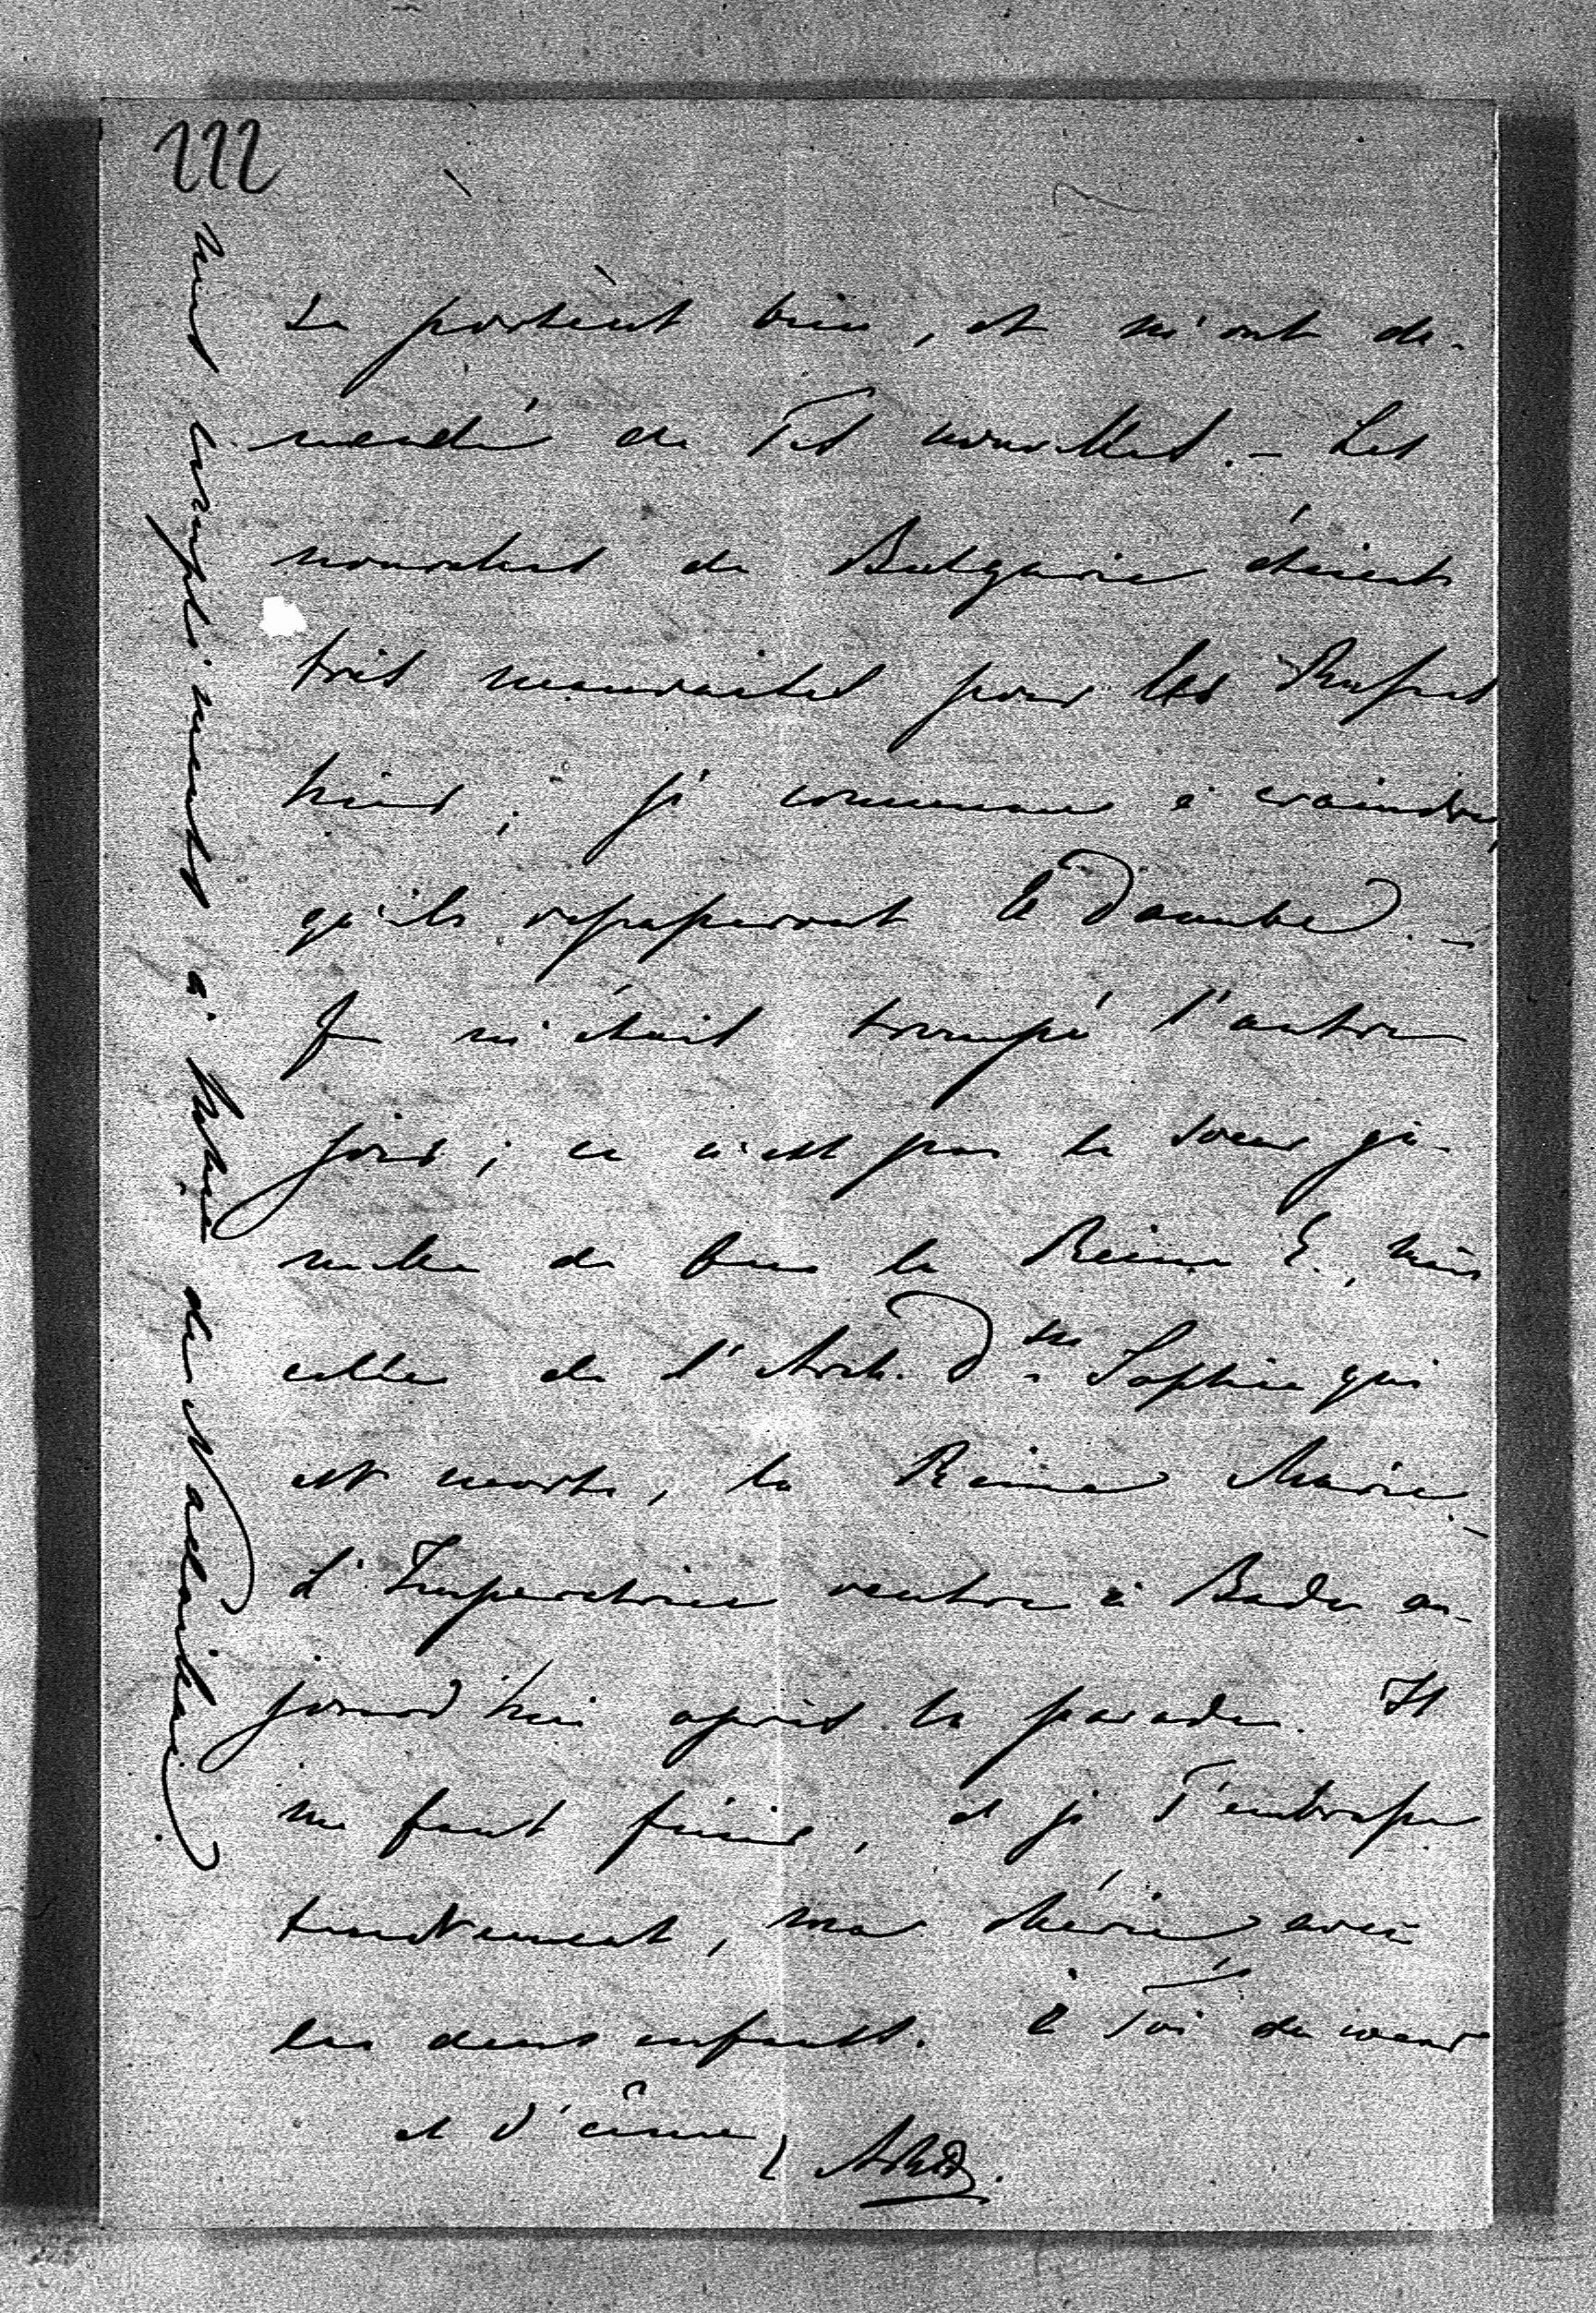 222
se portent bien, et m'ont de-
mandé de Tes nouvelles. – Les
nouvelles de Bulgarie étaient
très mauvaises pour les Russes
hier; je commence à craindre,
qu'ils repasseront le Danube. –
Je m'étais trompé l'autre
jour; ce n'est pas la soeur ju-
melle de feue la Reine E., mais
celle de l'Arch. D.sse Sophie qui
est morte, la Reine Marie. –
L'Imperatrice rentre à Bade au-
jourd'hui après la parade. Il
me faut finir, et je T'embrasse
tendrement, ma chérie avec
les deux enfants. à Toi de coeur
et d'âme,
mes compliments à
de